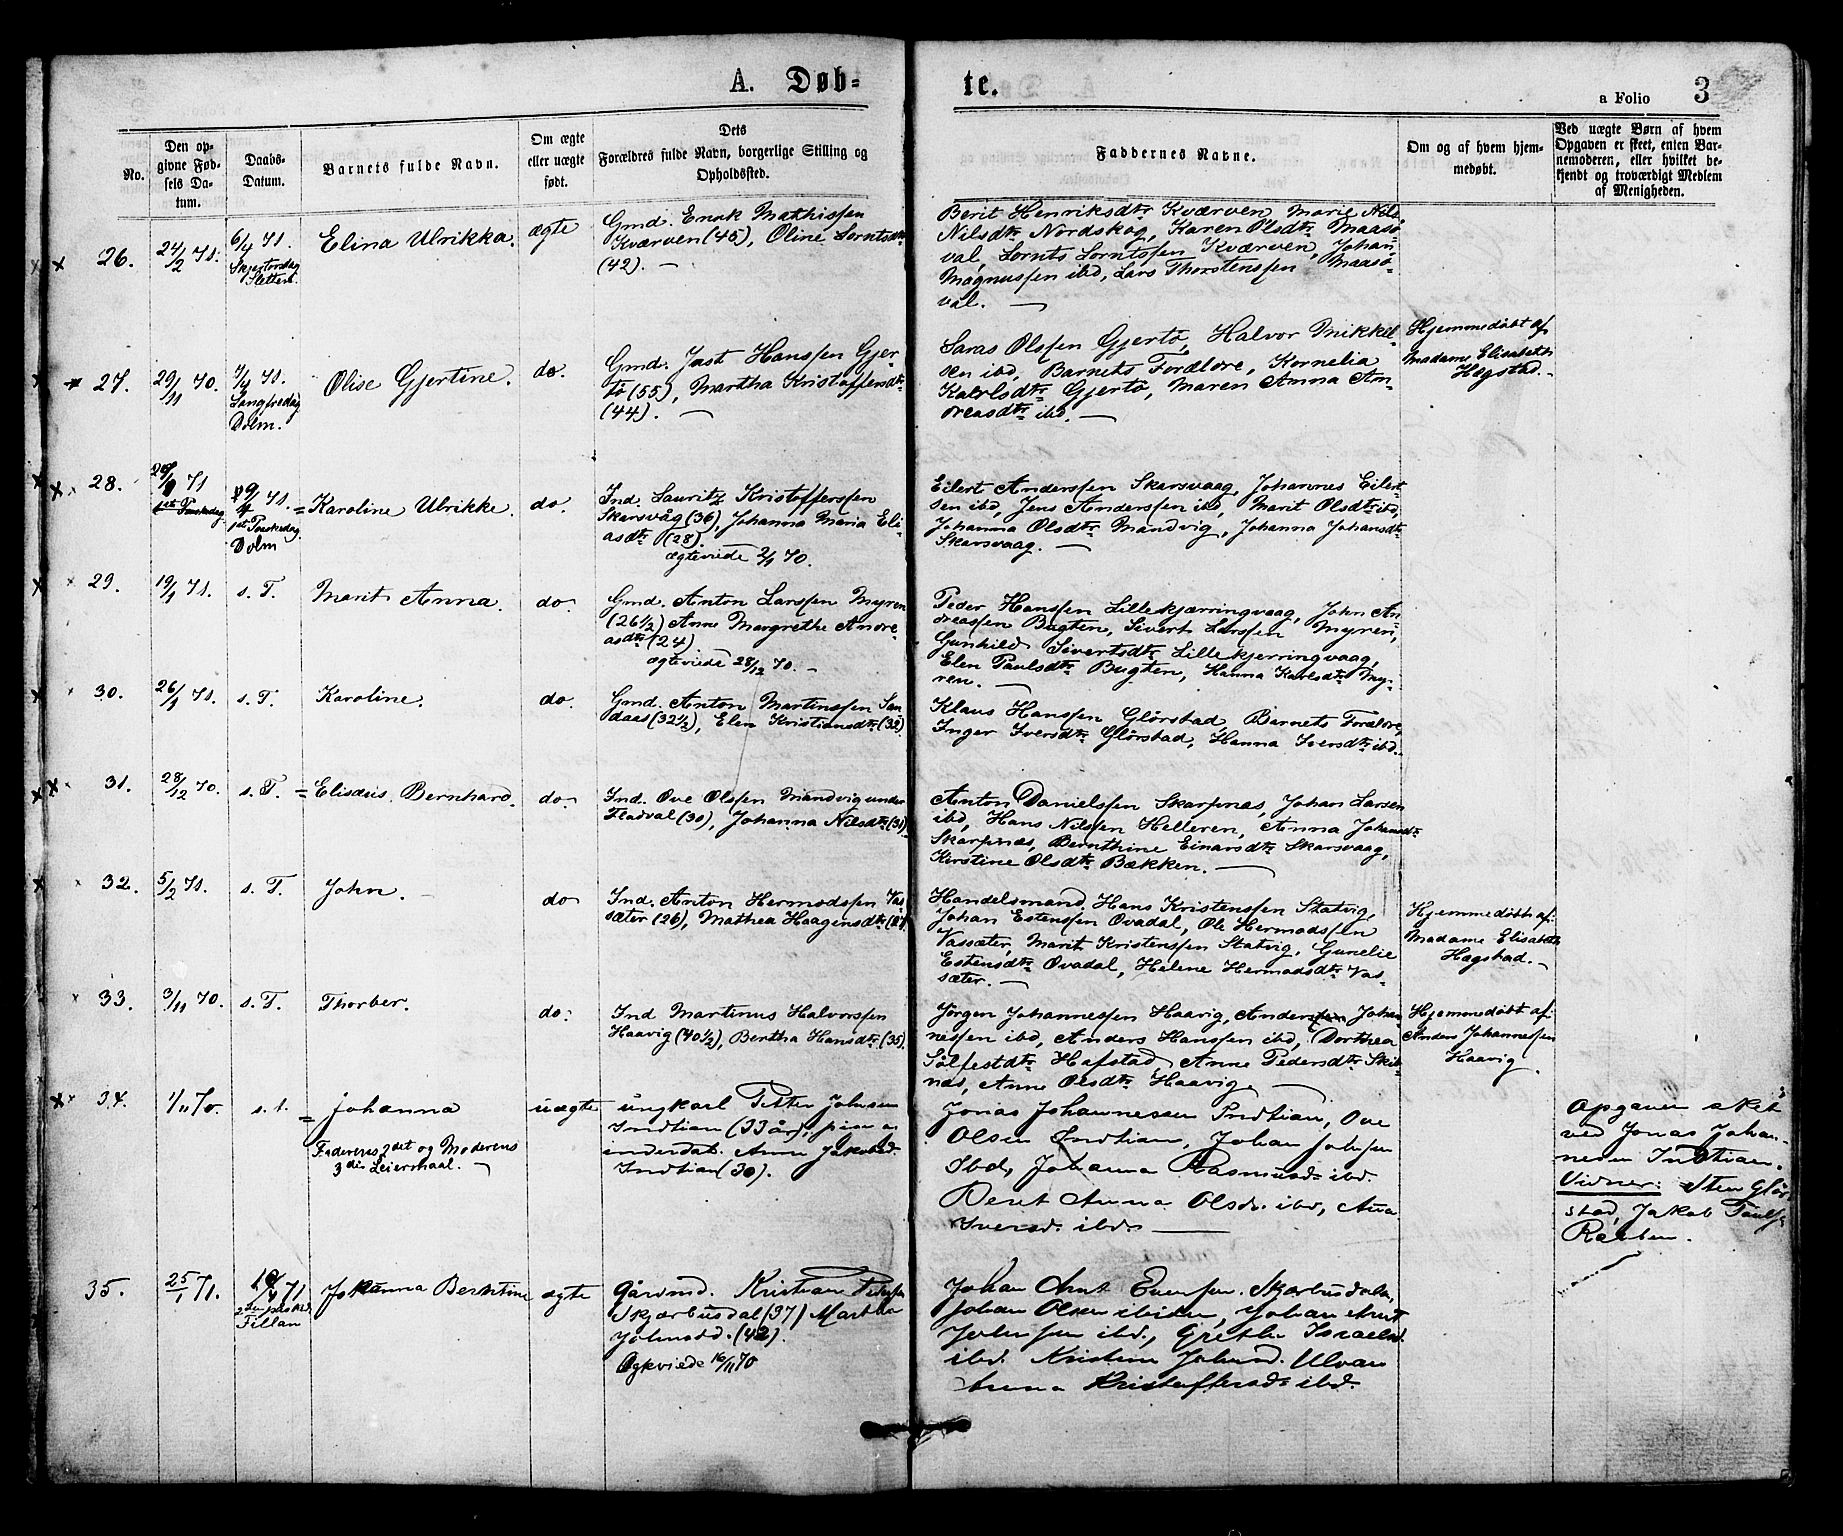 A. Døb-
te.
a Folio 3
No.
Den op-
givne Fød-
sels Da-
tum.
Daabs-
Datum.
Barnets fulde Navn.
Om ægte
eller uægte
født.
Dets
Forældres fulde Navn, borgerlige Stilling og
Opholdssted.
Faddernes Navne.
Om og af hvem hjem-
medøbt.
Ved uægte Børn af hvem
Opgaven er skeet, enten Bar-
nemoderen, eller hvilket be-
kjendt og troværdigt Medlem
af Menigheden.
26.
24/2 71.
6/4 71.
Skjertorsdag
Sletten.
Elina Ulrikka.
ægte
Gmd. Enok Mathissen
Kværven (45), Oline Lorntsdtr
(42). —
Berit Henriksdtr Kværven, Marie Nils
Nilsdtr Nordskog, Karen Olsdtr Maasø-
val, Lornts Lorntssen Kværven, Johan
Magnussen ibd, Lars Thorstenssen Maasø-
val. —
27.
29/11 70.
7/4 71.
Langfredag
Dolm.
Olise Gjertine.
do.
Gmd. Jast Hanssen Gjer-
tø (55), Martha Kristoffersdtr
(44). —
Saras Olssen Gjertø, Halvor Mikkel-
sen ibd, Barnets Forældre, Kornelia
Karlsdtr Gjertø, Maren Anna An-
dreasdtr ibd. —
Hjemmedøbt af
Madame Elisabeth
Hegstad. -
28.
71
1ste Paaskedag
9/4 71.
1ste Paaskedag.
Dolm
= Karoline Ulrikke.
do.
Ind. Lauritz Kristofferssen
Skarsvåg (36), Johanna Maria Eli-
asdtr (28).
ægteviede 2/1 70.
Eilert Anderssen Skarsvaag, Johannes Eilert-
sen ibd, Jens Anderssen ibd, Marit Olsdtr ibd,
Johanna Olsdtr Mandvig, Johanna Johansdtr
Skarsvaag. —
29.
19/1 71.
s. T.
Marit Anna.
do.
Gmd. Anton Larssen Myren
(26 1/2) Anne Margrethe Andre-
asdtr (24)
ægteviede 28/12 70. -
Peder Hanssen Lillekjærringvaag, John An-
dreassen Bugten, Sivert Larssen Myren,
Gunhild Sivertsdtr Lillekjerringvaag,
Elen Paulsdtr Bugten, Hanna Karlsdtr My-
ren. —
30.
26/1 71.
s. T.
Karoline.
do.
Gmd. Anton Martinssen San-
daas (32 1/2), Elen Kristiansdtr (32)
Klaus Hanssen Glørstad, Barnets Forældre,
Inger Iversdtr Glørstad, Hanna Iversdtr ibd.
31.
28/12 70.
s. T.
= Elisæus Bernhard.
do.
Ind. Ove Olssen Mandvig under
Fladval (30), Johanna Nilsdtr (31).
Anton Danielssen Skarpnæs, Johan Larsen
ibd, Hans Nilssen Helleren, Anna Johansdtr
Skarpnæs, Bernthine Einarsdtr Skarsvaag,
Kerstine Olsdtr Bækken. —
32.
5/2 71.
s. T.
John. -
do
Ind. Anton Hermodssen Vas-
sæter (26), Mathea Haagensdtr (27)
Handelsmand Hans Kristenssen Statvig,
Johan Estenssen Ovadal, Ole Hermodssen
Vassæter, Marit Kristenssen Statvig, Gunelie
Estensdtr Ovadal, Helene Hermodsdtr Vas-
sæter. —
Hjemmedøbt af:
Madame Elisabeth
Hegstad. -
33.
3/11 70.
s. T.
Thorber.
do.
Ind Martinus Halvorssen
Haavig (40 1/2), Bertha Hansdtr (35).
Jørgen Johannessen Haavig, Anderssen Johan-
nessen ibd, Anders Hanssen ibd, Dorthea
Sølfestdtr Hafstad, Anne Pedersdtr Skib-
næs, Anne Olsdtr Haavig. —
Hjemmedøbt af:
Anders Johannessen
Haavig.
34.
1/11 70.
s. t.
= Johanna
Faderens 2det og Moderens
3die Leiermaal. -
uægte
ungkarl Petter Johnsen
Indtian (33 år), pige o
inderdat. Anne Jakobsd.
Indtian (30).
Jonas Johannessen Indtian, Ove
Olsen Indtian, Johan Johnsen
Ibd, Johanna Rasmusd. ibd.
Beret Anna Olsd. ibd, Ana
Iversd. ibd. —
Opgaven sket
ved Jonas Johan-
nesen Indtian.
Vidner: Sten Glør-
stad, Jakob Paulss
Rabben.
35.
25/1 71.
10/4 71
2den paaskd
Fillan
Johanna Berntine
ægte
Gårmd. Kristian Peders
Skjærbusdal (37) Martha
Johnsd. (42).
Ægteviede 16/11 70
Johan Arnt Evensen Skarbusdalen,
Johan Olsen ibiden, Johan Arnt
Johnsen ibd., Grethe Israelsd.
ibd. Kristine Johnsd. Ulvan
Anna Kristoffersd. ibd.